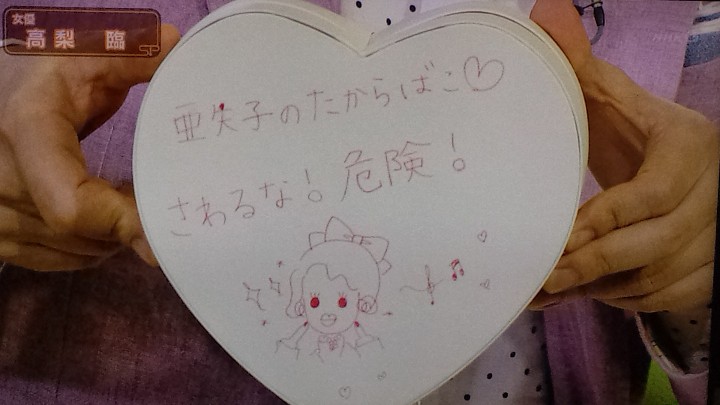 女優
高梨 臨
SP
亜矢子のたからばこ♡
さわるな! 危険!